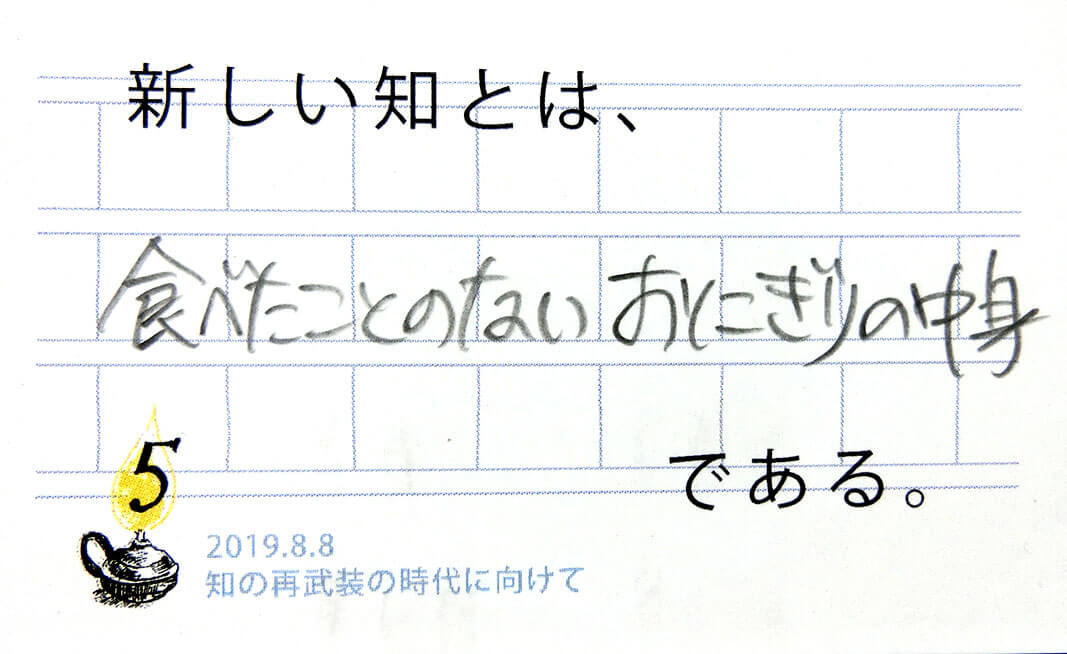 新しい知とは、
食べたことのないおにぎりの中身
である。
5
2019.8.8
知の再武装の時代に向けて